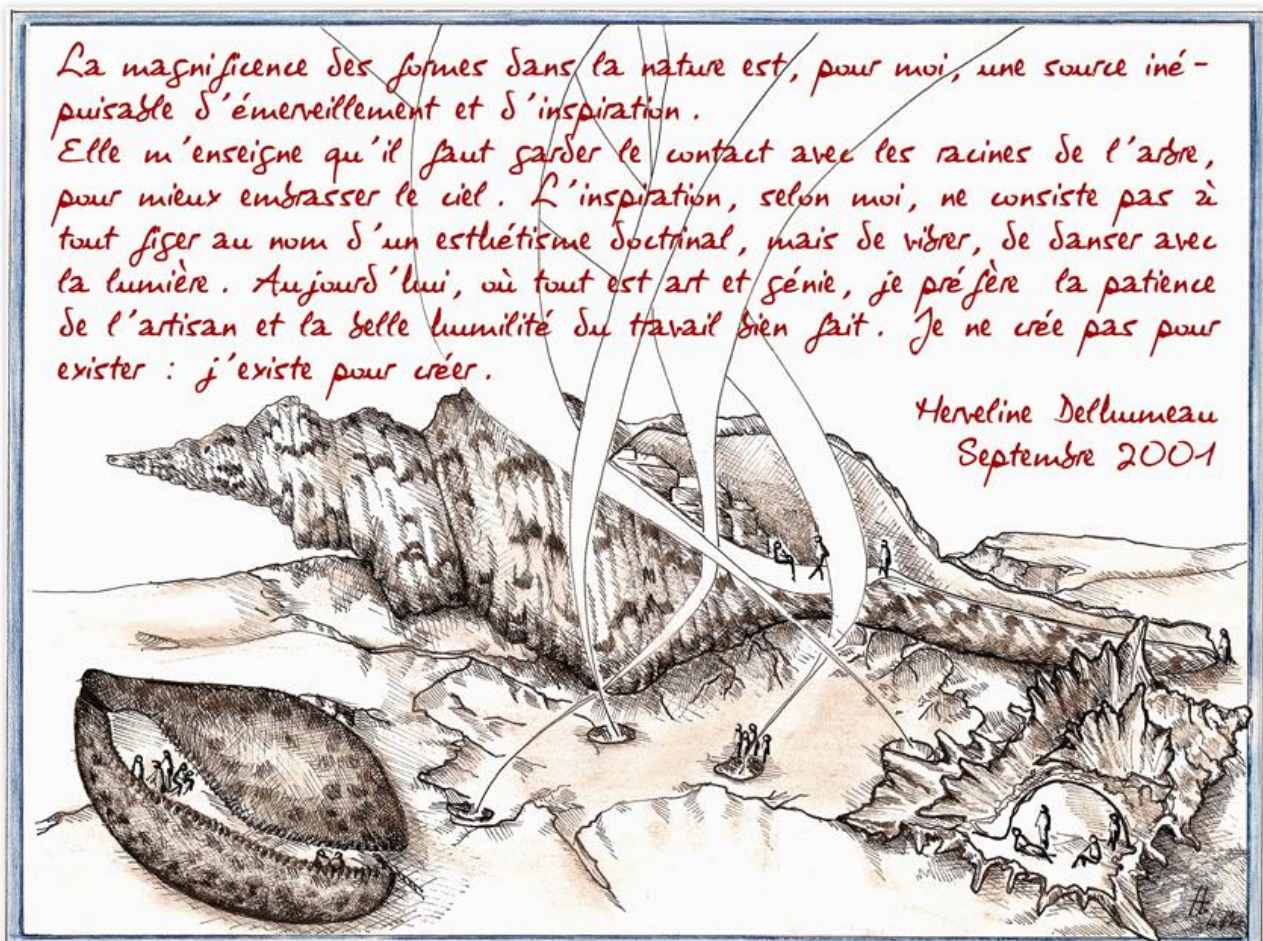 La magnificence des formes dans la nature est, pour moi, une source iné-
puisable d'émerveillement et d'inspiration.
Elle m'enseigne qu'il faut garder le contact avec les racines de l'arbre,
pour mieux embrasser le ciel. L'inspiration, selon moi, ne consiste pas à
tout figer au nom d'un esthétisme doctrinal, mais de vibrer, de danser avec
la lumière. Aujourd'hui, où tout est art et génie, je préfère la patience
de l'artisan et la belle humilité du travail bien fait. Je ne crée pas pour
exister : j'existe pour créer.
Herveline Delhumeau
Septembre 2001